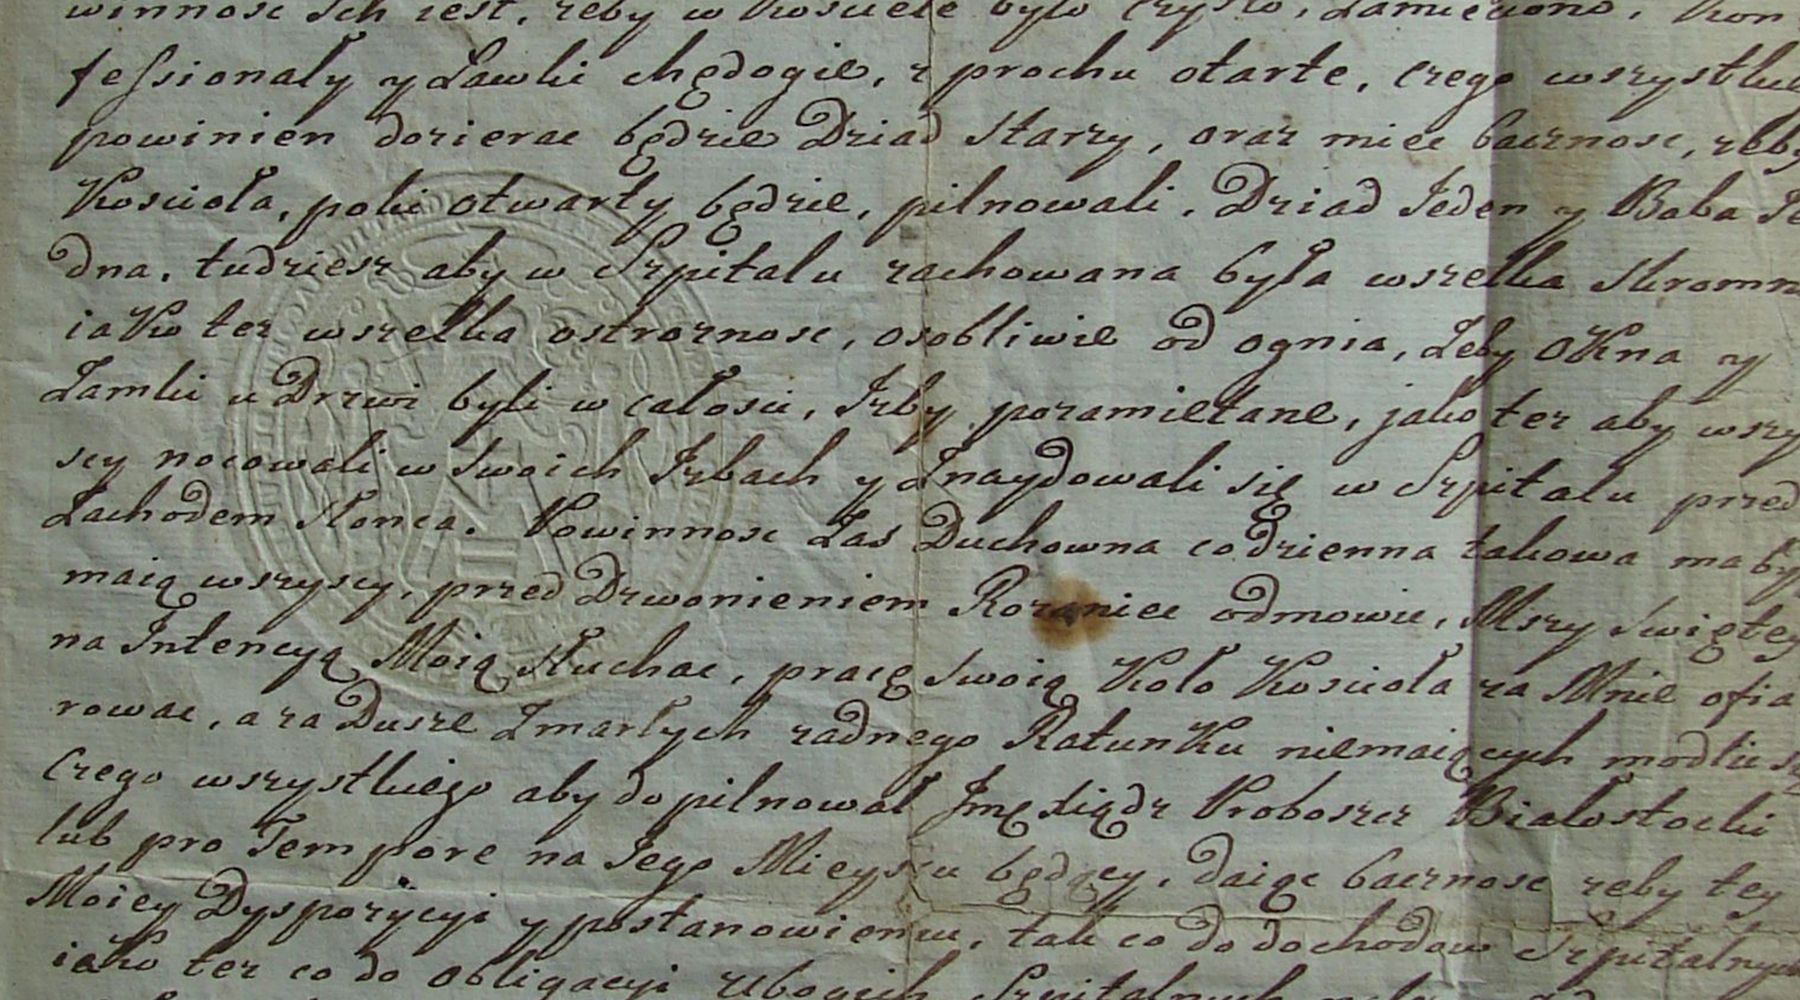 winnosc Ich iest, zeby w Kosciele było Czysto, Zamieciono, Kon-
fessionały y Ławki chędogie, z prochu otarte, czego wszystkie
powinien dozierac będzie Dziad Starzy, oraz miec bacznosc, zeby
Kościoła, poki otwarty będzie, pilnowali, Dziad Jeden y Baba Je
dna, tudziesz aby w Szpitalu zachowana była wszelka skromn
iako tez wszelka ostroznosc, osobliwie od ognia, Zeby Okna y
Zamki u Drzwi byli w całosci, Izby pozamietane, jako tez aby wszy
scy nocowali w swoich Izbach y Znaydowali się w Szpitalu przed
Zachodem słonca. Powinnosc Zas Duchowna codzienna takowa ma by
maią wszyscy, przed Dzwonieniem Rozaniec odmowic, Mszy Swiętey
na Intencyą Moią słuchac, pracę swoią Koło Kosciola za Mnie ofia
rowac, a za Dusze Zmarłych zadnego Ratunku niemaiących modlic się
Czego wszystkiego aby dopilnował Jmę Xiądz Proboszcz Białostocki
lub pro Tempore na Jego Mieyscu będący, daiąc bacznosc zeby tey
Moiey Dyspozycyi y postanowieniu, tak co do dochodow Szpitalnych
iako tez co do obligacyi Ubogich Szpitalnych